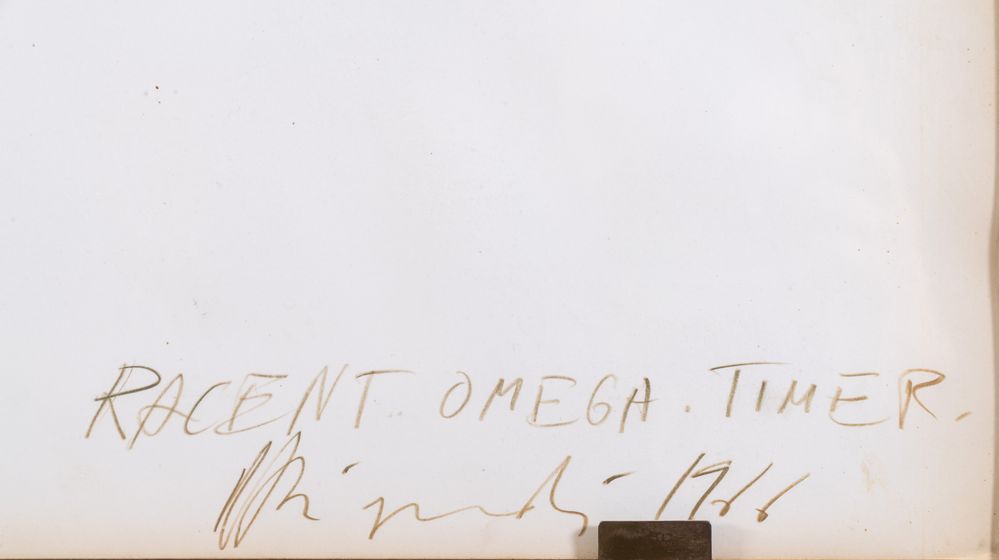 RACENT OMEGA. TIMER.
1966